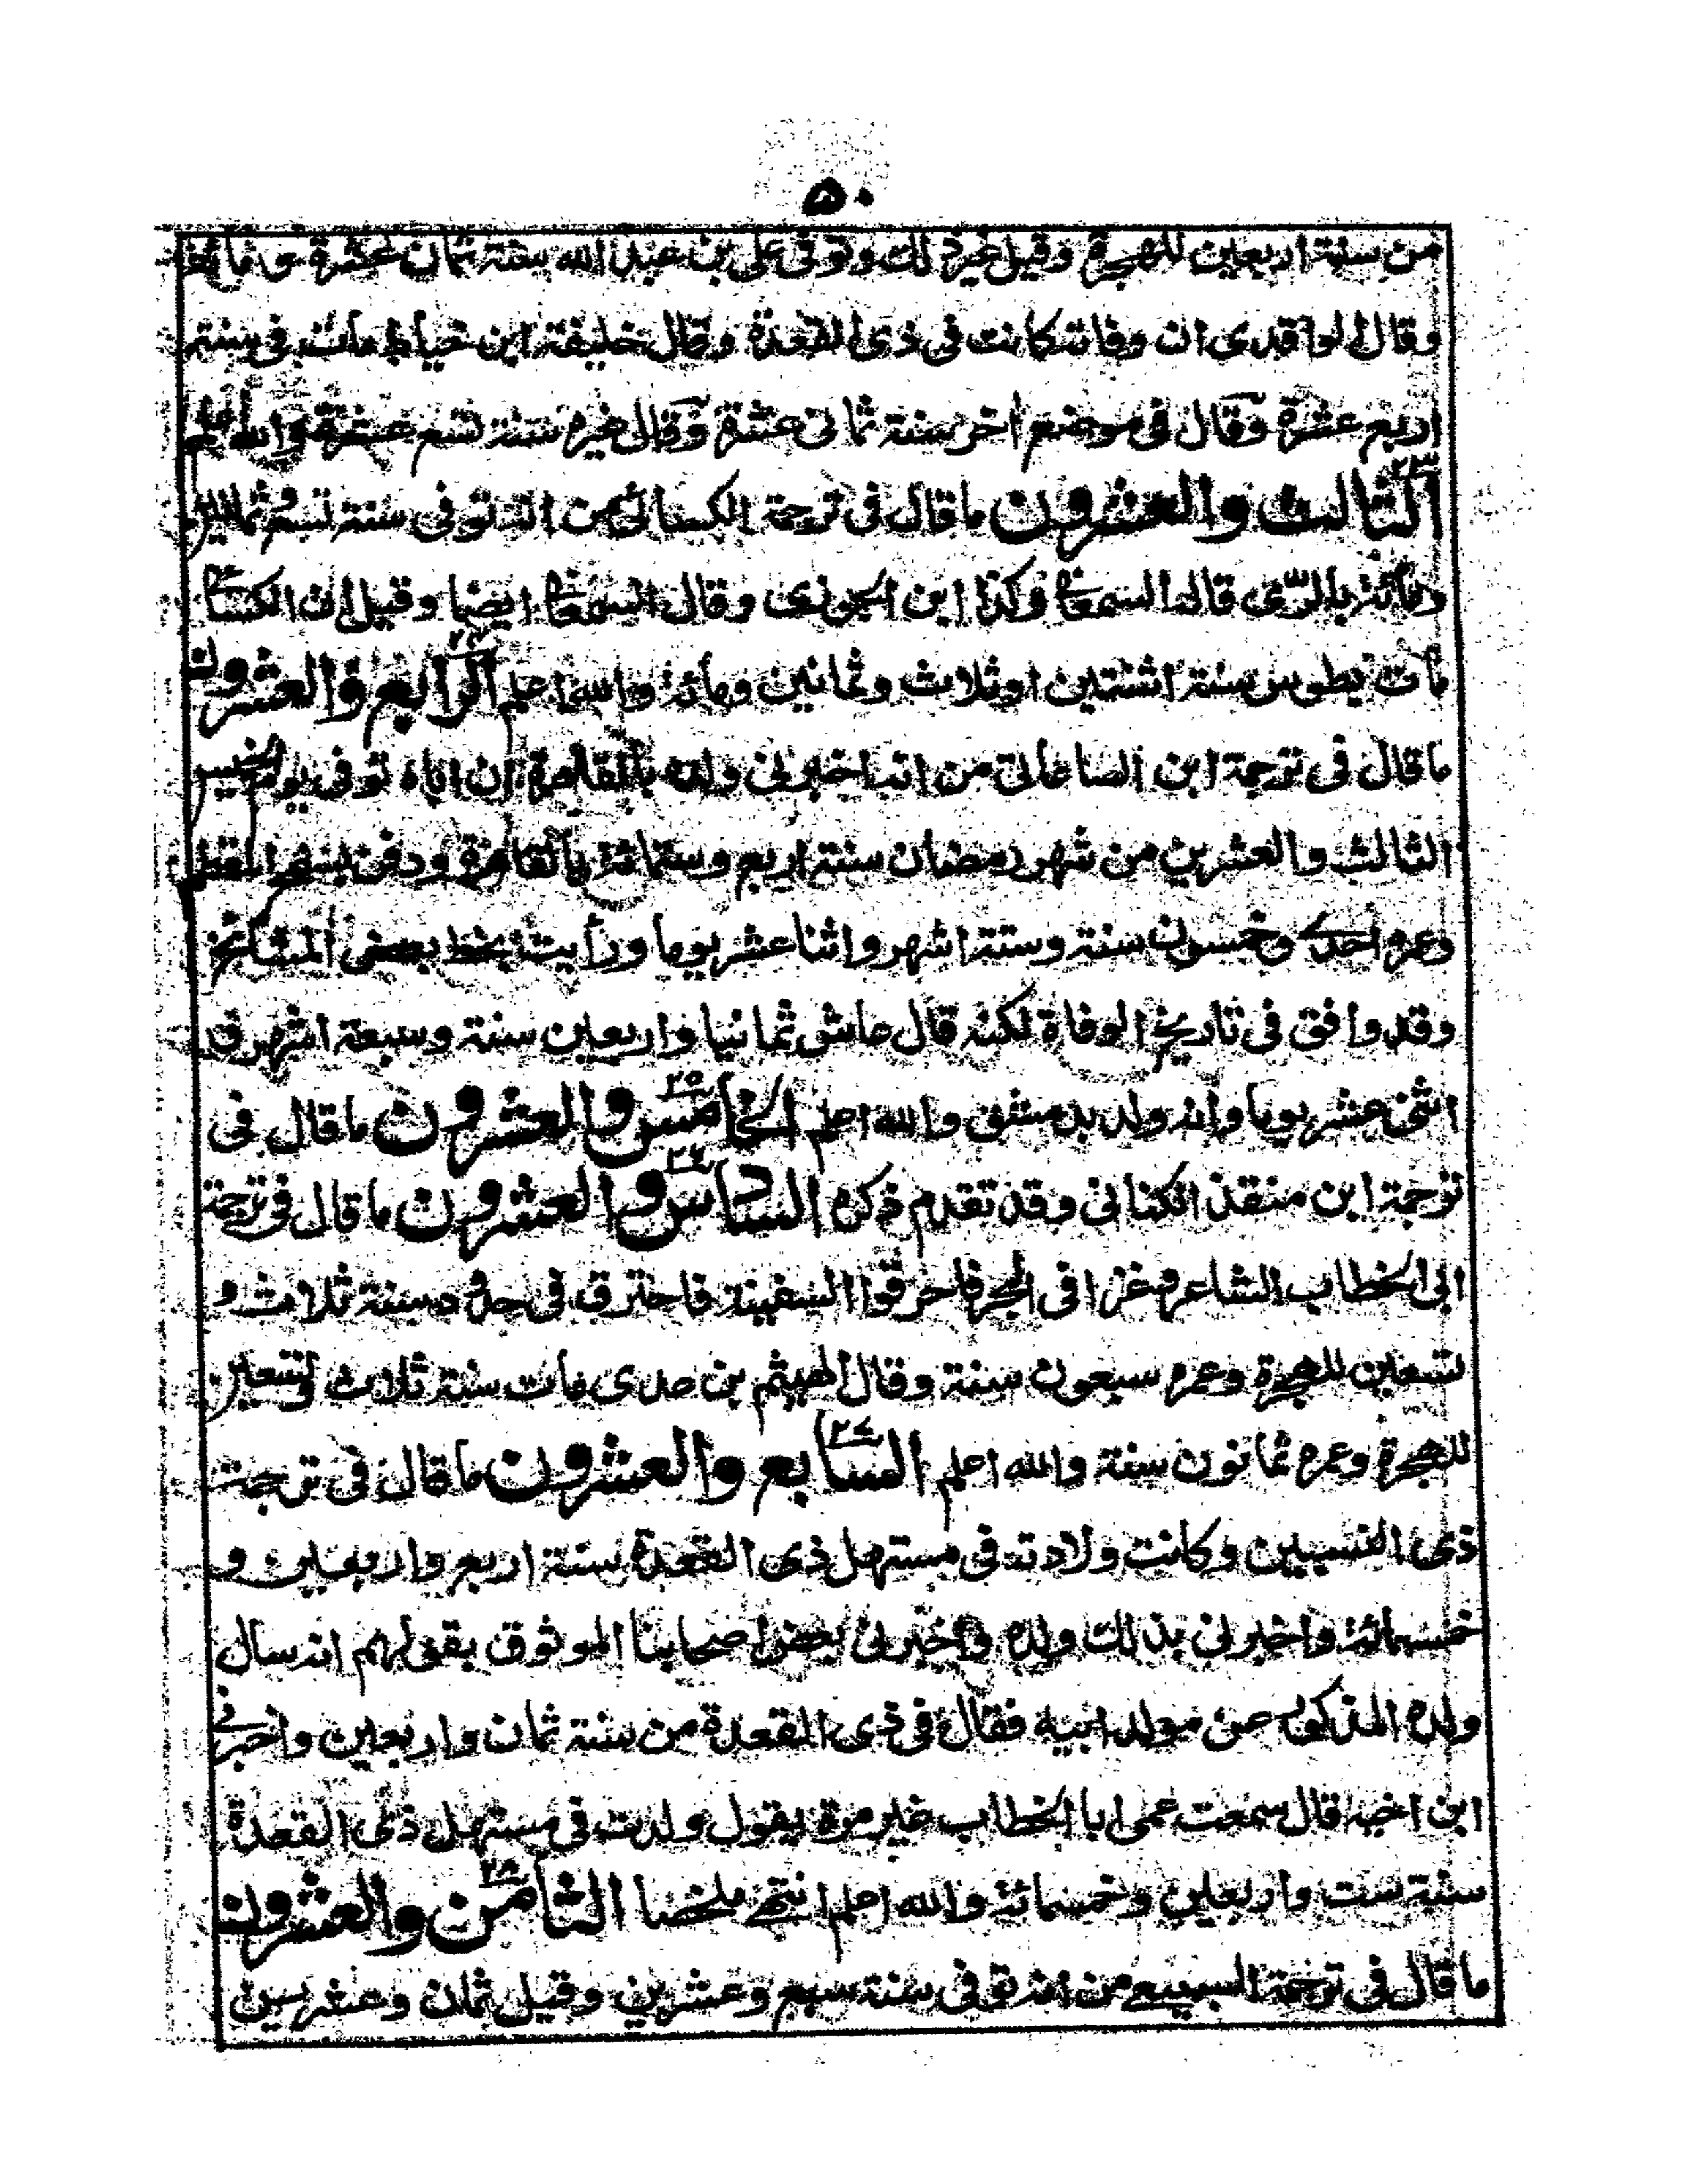 ۵۰
من سنة اربعين للهجرة وقيل غير ذلك وتوفى على بن عبد الله سنة ثمان عشرة ومائة
وقال الواقدى ان وفاته كانت فى ذى القعدة وقال خليفة ابن خياط مات فى سنة
اربع عشرة وقال فى موضع اخر سنة ثمانى عشرة وقال غيره سنة تسع عشرة والله اعلم
۲۳
الثالث والعشرون ما قال فى ترجمة الكسائى من انه توفى سنة تسع وثمانين
ومائة بالرّى قاله السمعانى وكذا ابن الجوزى وقال السمعانى ايضا وقيل ان الكسائى
مات بطوس سنة اثنتين او ثلاث وثمانين ومائة والله اعلم الرابع والعشرون
ما قال فى ترجمة ابن الساعاتى من انه اخبرنى ولده بالقاهرة ان اباه توفى يوم الخميس
الثالث والعشرين من شهر رمضان سنة اربع وستمائة بالقاهرة ودفن بسفح المقطم
وعمره احدى وخمسون سنة وستة اشهر واثنا عشر يوما ورأيت بخط بعض المشائخ
وقد وافق فى تاريخ الوفاة لكنه قال عاش ثمانيا واربعين سنة وسبعة اشهر و
اثنى عشر يوما وانه ولد بدمشق والله اعلم الخامس والعشرون ما قال فى
۲۵
ترجمة ابن منقذ الكنانى وقد تقدم ذكره السادس والعشرون ما قال فى ترجمة
۲۶
ابى الخطاب الشاعر وغزا فى البحر فاحرقوا السفينة فاحترق فى حدود سنة ثلاث و
تسعين للهجرة وعمره سبعون سنة وقال الهيثم بن عدى مات سنة ثلاث وتسعين
للهجرة وعمره ثمانون سنة والله اعلم السابع والعشرون ما قال فى ترجمة
۲۷
ذى النسبين وكانت ولادته فى مستهل ذى القعدة سنة اربع واربعين و
خمسمائة واخبرنى بذلك ولده واخبرنى بعض اصحابنا الموثوق بقولهم انه سال
ولده المذكور عن مولد ابيه فقال فى ذى القعدة من سنة ثمان واربعين واخبرنى
ابن اخيه قال سمعت عمى ابا الخطاب غير مرة يقول ولدت فى مستهل ذى القعدة
سنة ست واربعين وخمسمائة والله اعلم انتهى ملخصا الثامن والعشرون
۲۸
ما قال فى ترجمة السبيعى من انه توفى سنة سبع وعشرين وقيل ثمان وعشرين